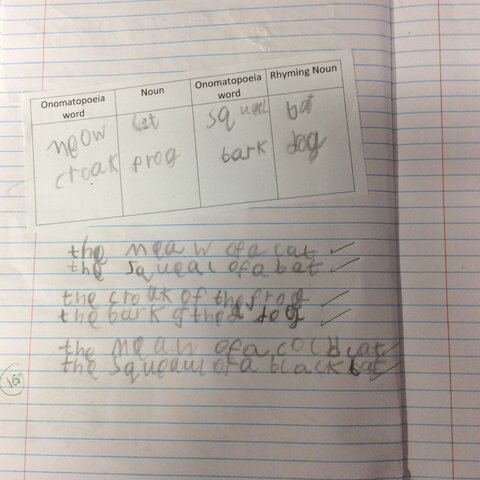 Onomatopoeia word Noun Onomatopoeia word Rhyming Noun
meow cat squeal bat
croak frog bark dog
the meaw of a cat
the squeal of a bat
the croak of the frog
the bark of the dog
the meaw of a cold cat
the squeaul of a black bat